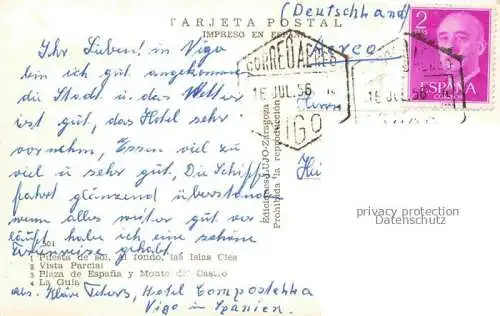 (Deutschland)
TARJETA POSTAL
IMPRESO EN ESPAÑA
Aereo
CORREO AEREO
16 JUL. 56
VIGO
16 JUL. 56
2
PTAS
ESPAÑA
CORREOS
Ihr Lieben! in Vigo
bin ich gut angekommen
die Stadt u. das Wetter
ist gut, das Hotel sehr
vornehm, Essen viel zu
viel u sehr gut, Die Schiff
fahrt glänzend überstanden
wenn alles weiter gut ver
läuft habe ich eine schöne
Ferienreise gehabt
Herrn
Ediciones LUJO-Zaragoza
Prohibida la reproducción
privacy protection
Datenschutz
501
1 Puesta de sol, al fondo, las Islas Cies
2 Vista Parcial
3 Plaza de España y Monte del Castro
4 La Guia
abs. Kläre Hotel Compostella
Vigo in Spanien.